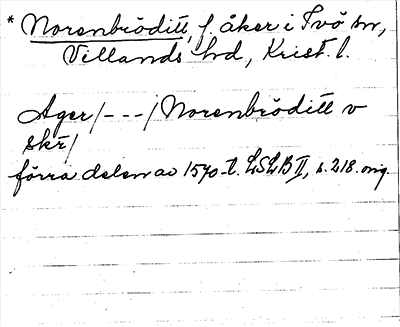 * Norenbröditt, f. åker i Ivö sn,
Villands hd, Krist. l.
Ager/---/Norenbröditt v
skr/
förra delen av 1570-t. LSLB II, s. 218. orig.